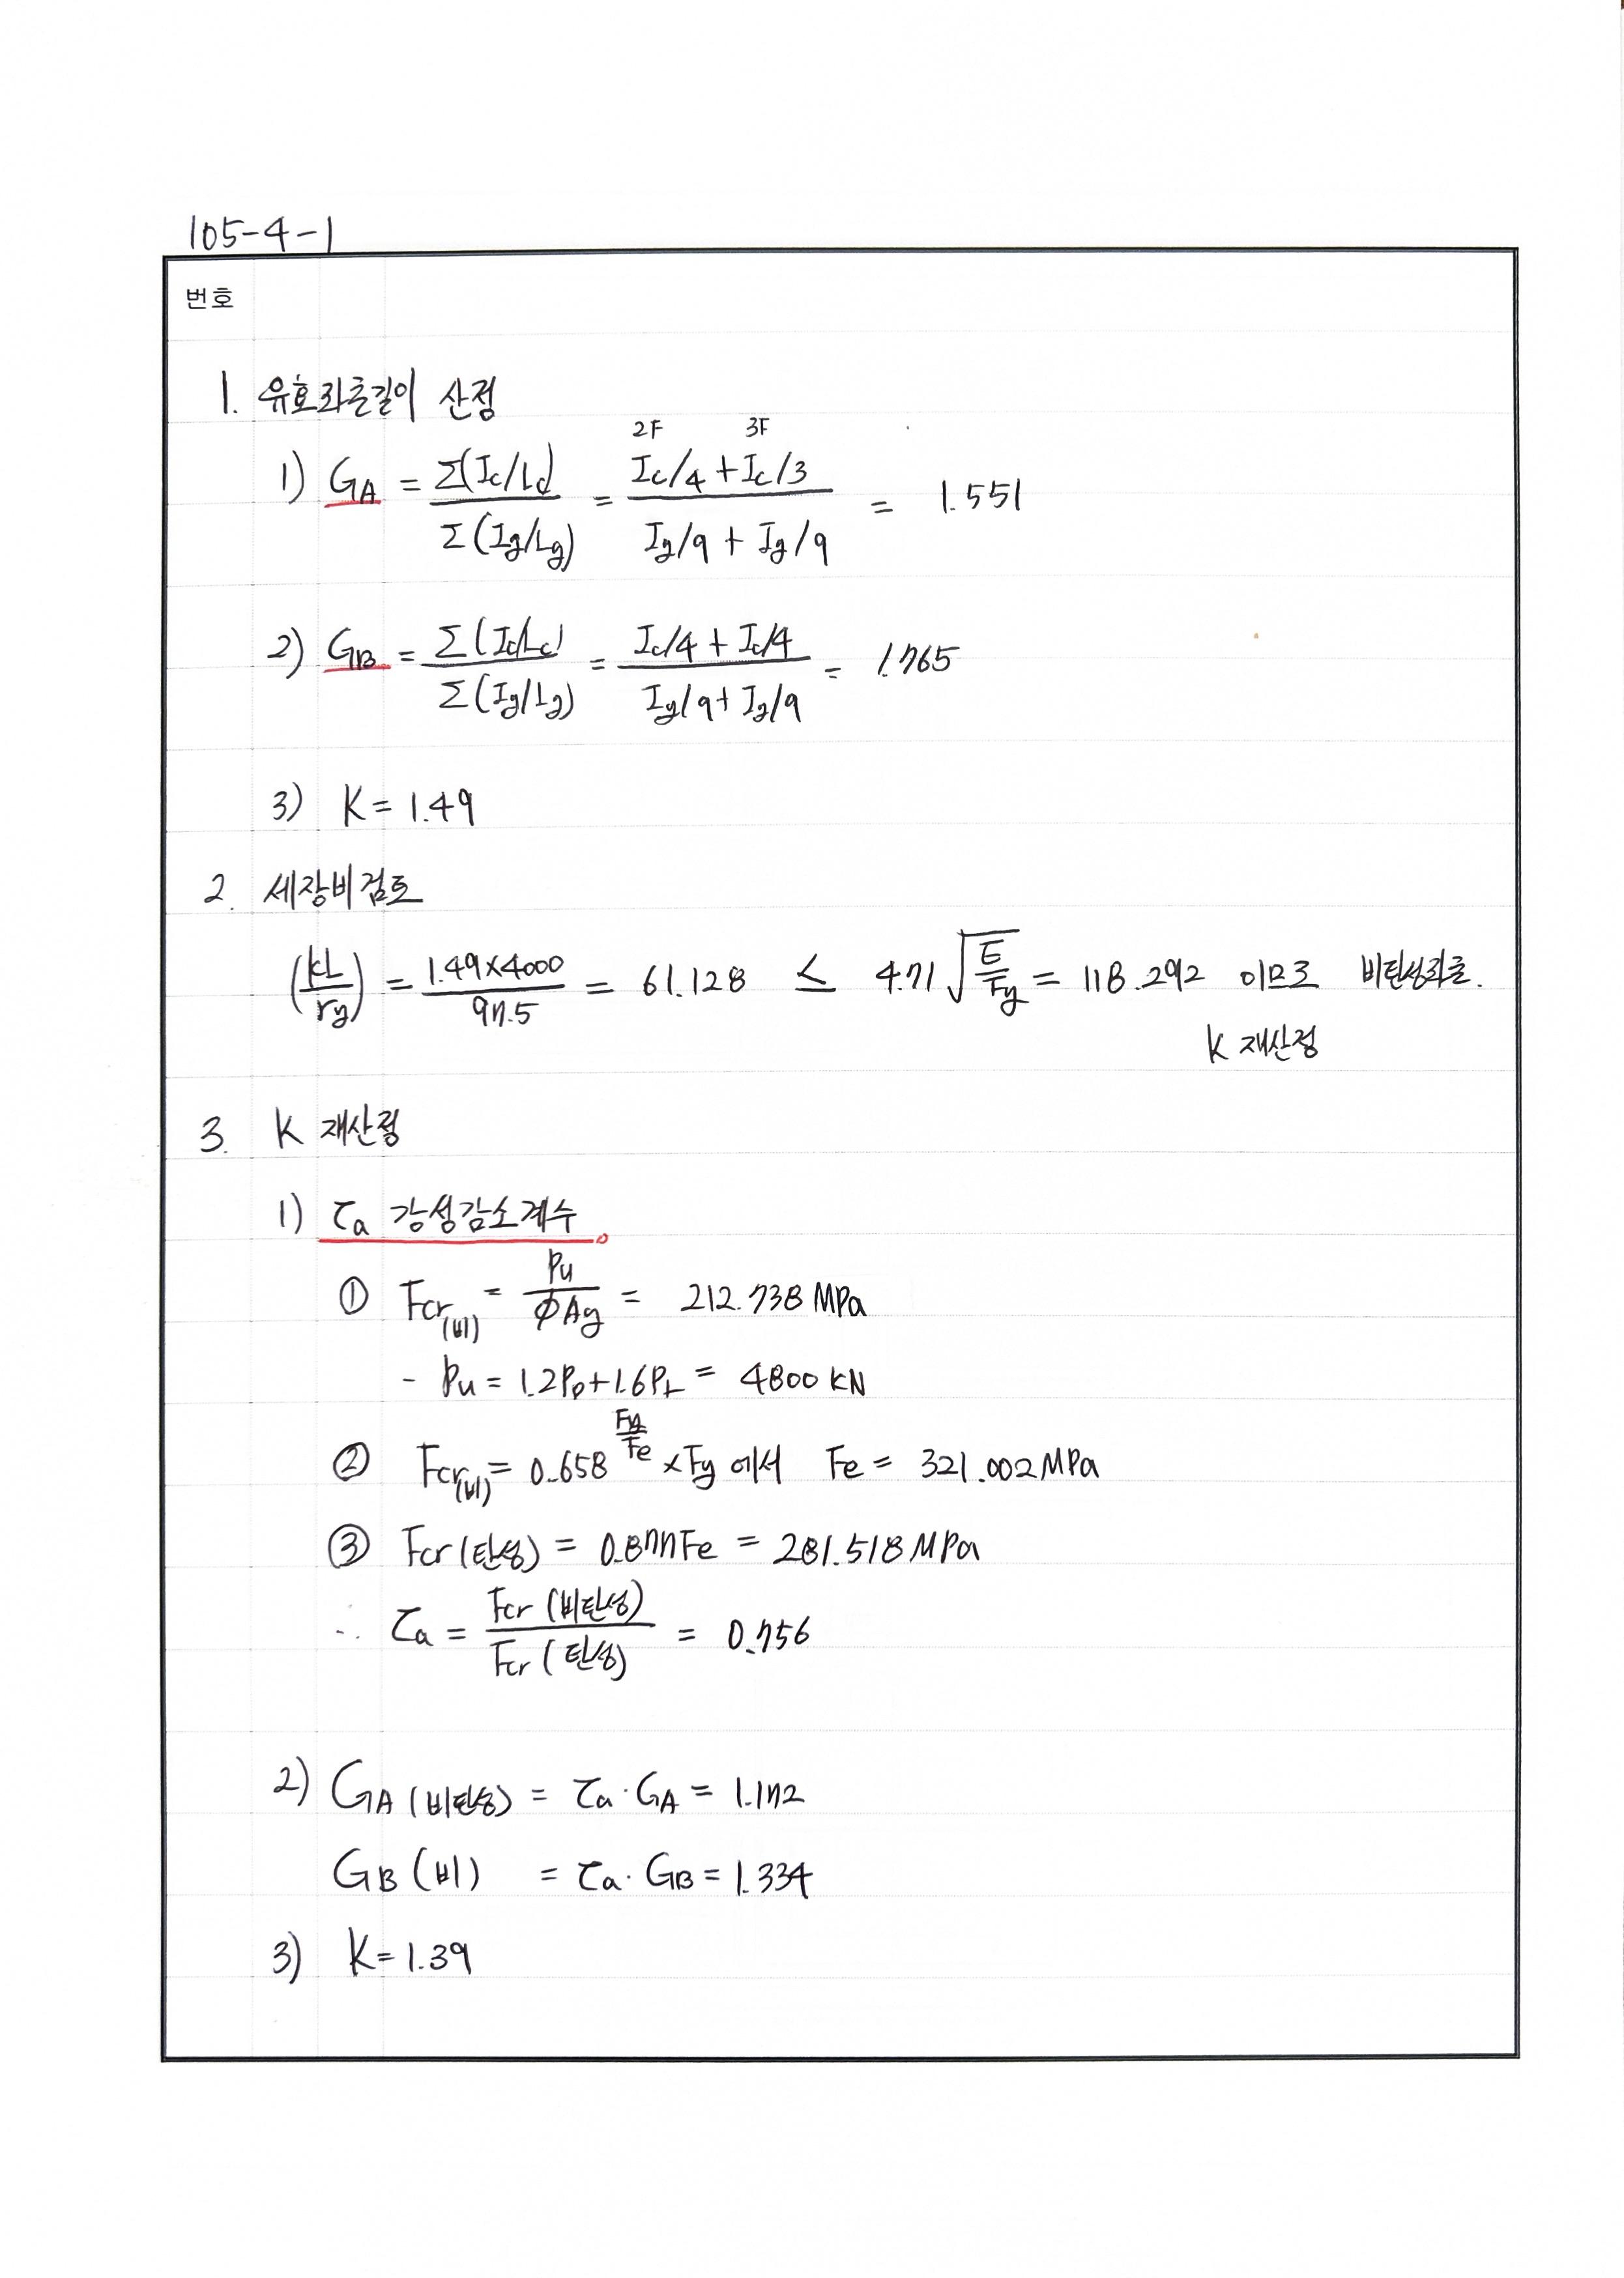 105-4-1
번호
1. 유효좌굴길이 산정
2F 3F
1) GA = Σ(Ic/Lc) / Σ(Ig/Lg) = (Ic/4 + Ic/3) / (Ig/9 + Ig/9) = 1.551
2) GB = Σ(Ic/Lc) / Σ(Ig/Lg) = (Ic/4 + Ic/4) / (Ig/9 + Ig/9) = 1.765
3) K = 1.49
2. 세장비검토
(kL/ry) = 1.49×4000 / 97.5 = 61.128 ≤ 4.71√(E/Fy) = 118.292 이므로 비탄성좌굴.
K 재산정
3. K 재산정
1) τa 강성감소계수
① Fcr(비) = Pu / ϕAg = 212.738 MPa
- Pu = 1.2PD+1.6PL = 4800 kN
② Fcr(비) = 0.658^(Fy/Fe) × Fy 에서 Fe = 321.002 MPa
③ Fcr (탄성) = 0.877Fe = 281.518 MPa
∴ τa = Fcr (비탄성) / Fcr (탄성) = 0.756
2) GA (비탄성) = τa · GA = 1.172
GB (비) = τa · GB = 1.334
3) K = 1.39